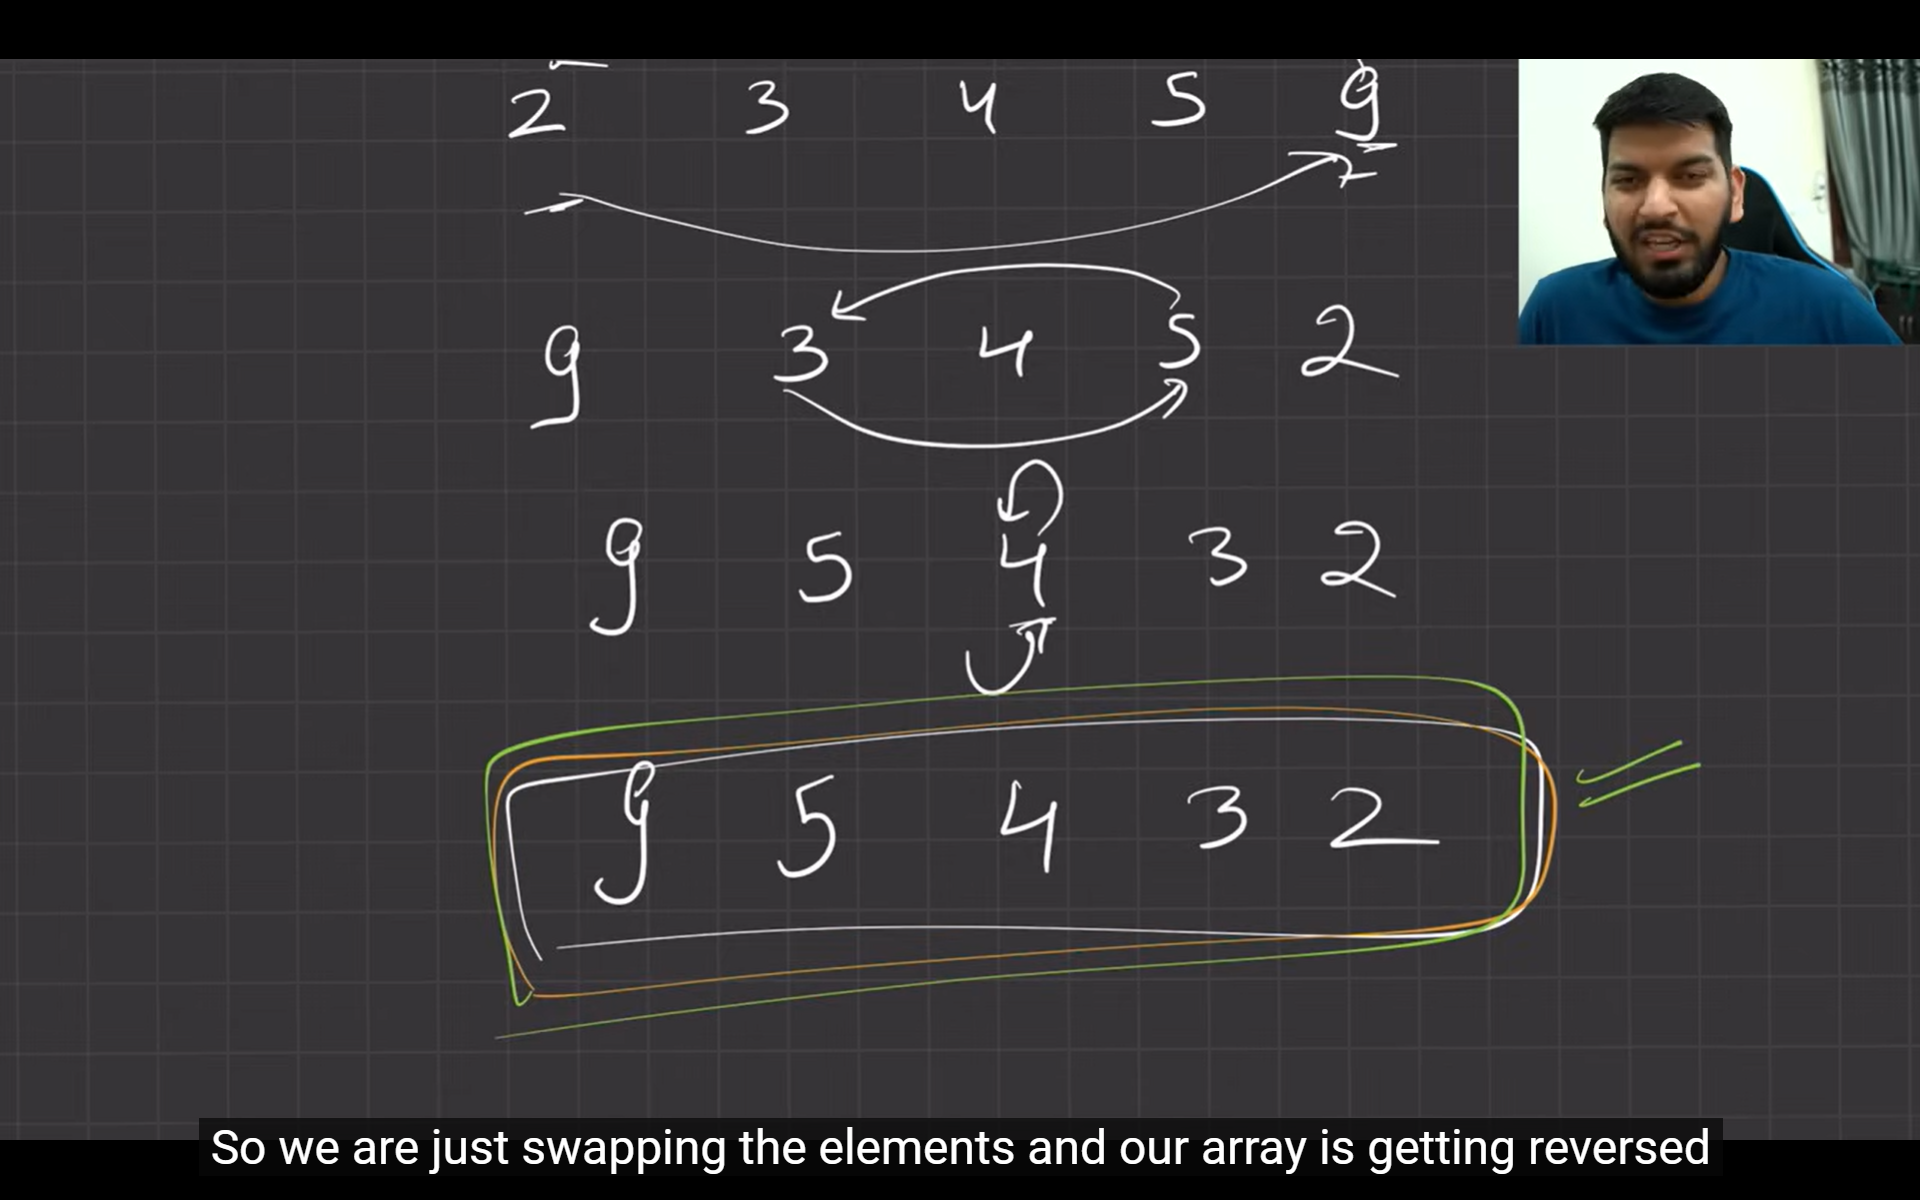 2 3 4 5 9
9 3 4 5 2
9 5 4 3 2
9 5 4 3 2
So we are just swapping the elements and our array is getting reversed